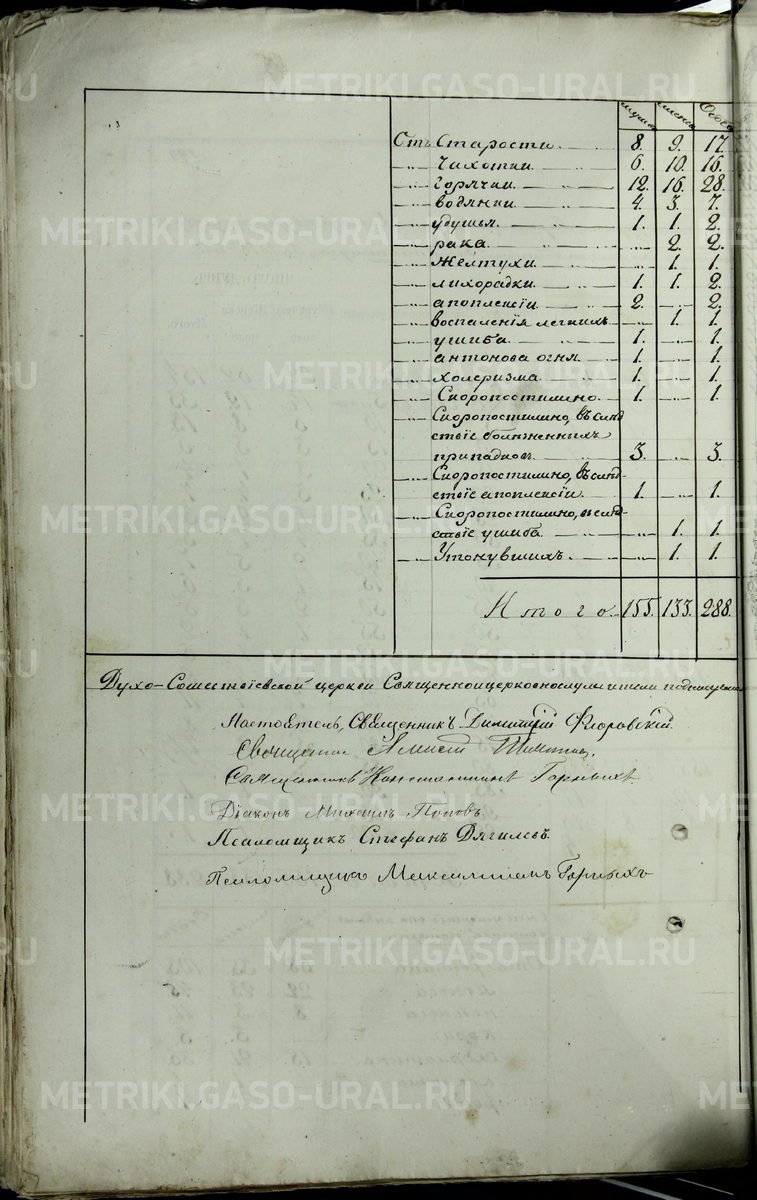 Отъ Старости 8. 9. 17.
" Чахотки 6. 10. 16.
" Горячки 12. 16. 28.
" водянки 4. 3. 7.
" удушья 1. 1. 2.
" рака " 2. 2.
" Желтухи " 1. 1.
" лихорадки 1. 1. 2.
" апоплексіи 2. " 2.
" воспаленія легкихъ " 1. 1.
" ушиба 1. " 1.
" антонова огня 1. " 1.
" холеризма 1. " 1.
" Скоропостижно 1. " 1.
" Скоропостижно, въ слѣд
ствіе болѣзненныхъ
припадковъ 3. " 3.
" Скоропостижно, въ слѣд
ствіе апоплексіи 1. " 1.
" Скоропостижно, въ слѣд-
ствіе ушиба " 1. 1.
" Утонувшихъ " 1. 1.
Итого 155. 133. 288.
Духо-Сошествіевской церкви Священноицерковнослужители
Настоятель, Священникъ Димитрій Флоровскій.
Священникъ
Священникъ Константинъ Горныхъ
Діаконъ Михаилъ Поповъ
Псаломщикъ Стефанъ Дягилевъ
Псаломщикъ Максимиліанъ Горныхъ
METRIKI.GASO-URAL.RU